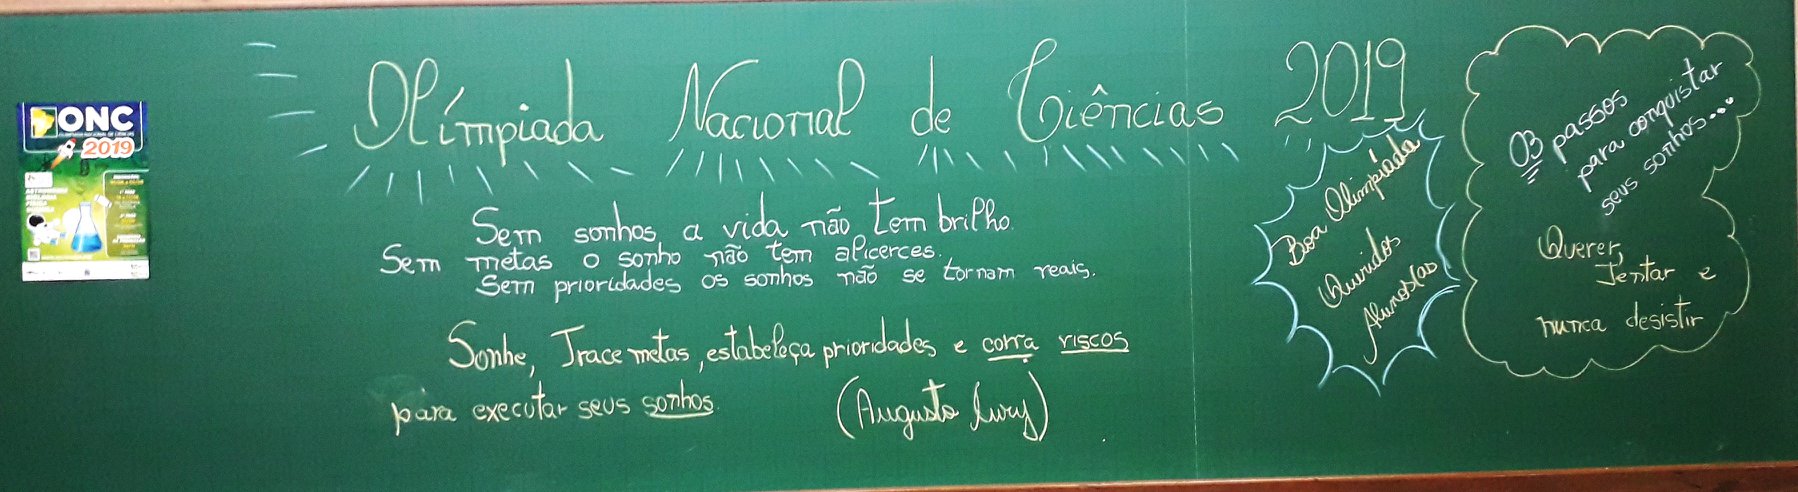 ONC
2019
Olímpiada Nacional de Ciências 2019
Sem sonhos, a vida não tem brilho.
Sem metas o sonho não tem alicerces.
Sem prioridades os sonhos não se tornam reais.
Sonhe, Trace metas, estabeleça prioridades e corra riscos
para executar seus sonhos.
(Augusto Cury)
Boa Olimpíada
Queridos
Alunos/as
03 passos
para conquistar
seus sonhos...
Querer,
Tentar e
nunca desistir